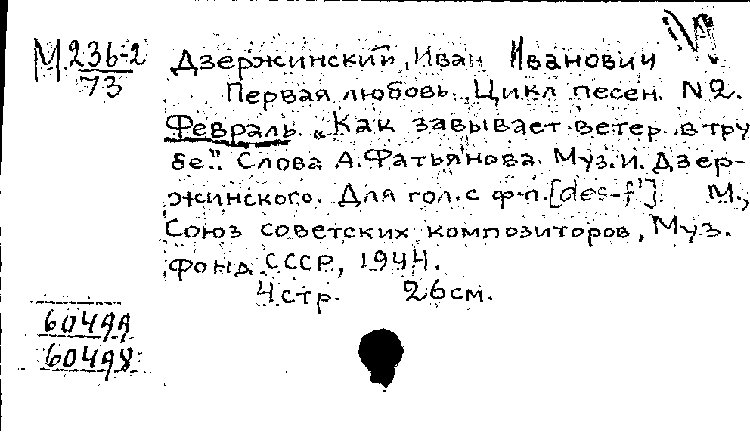 М 236-2
73
Дзержинский, Иван Иванович
Первая любовь. Цикл песен. N2.
Февраль. „Как завывает ветер в тру
бе“. Слова А. Фатьянова. Муз. И. Дзер-
жинского. Для гол. с ф-п. [des-f']. М.,
Союз советских композиторов, Муз.
фонд СССР, 1944.
4 стр. 26 см.